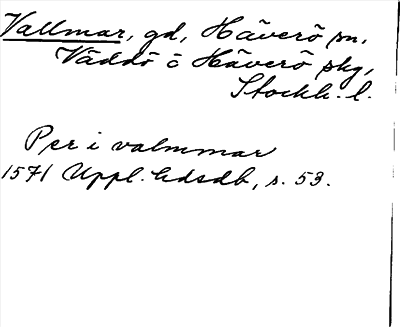 Vallmar, gd, Häverö sn,
Väddö o Häverö skg,
Stockh. l.
Per i valmmar
1571 Uppl. Edsdb, s. 53.